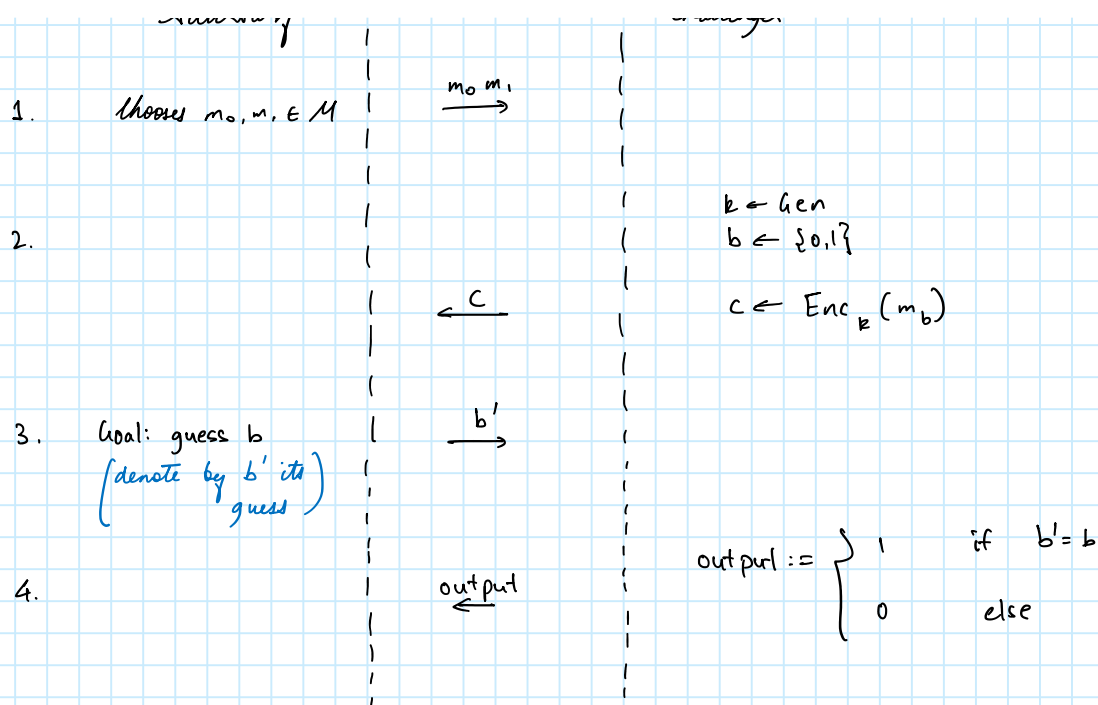 1. Chooses m₀, m₁ ∈ M
m₀ m₁
k ← Gen
2.
b ← {0,1}
c
c ← Encₖ(m_b)
b'
3. Goal: guess b
(denote by b' its
guess)
output := { 1 if b' = b
4.
output
0 else